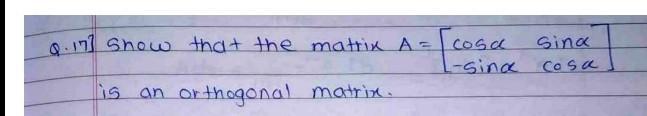 Q.17] Show that the matrix A = [cosα sinα
-sinα cosα]
is an orthogonal matrix.